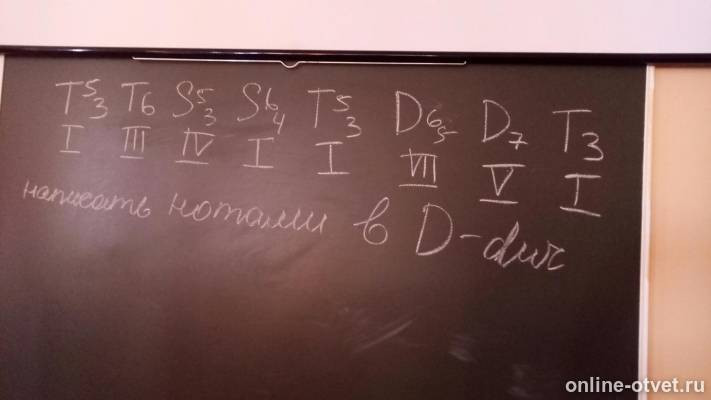 T⁵₃ T₆ S⁵₃ S⁶₄ T⁵₃ D⁶₅ D₇ T₃
I III IV I I VII V I
написать нотами в D-dur
online-otvet.ru